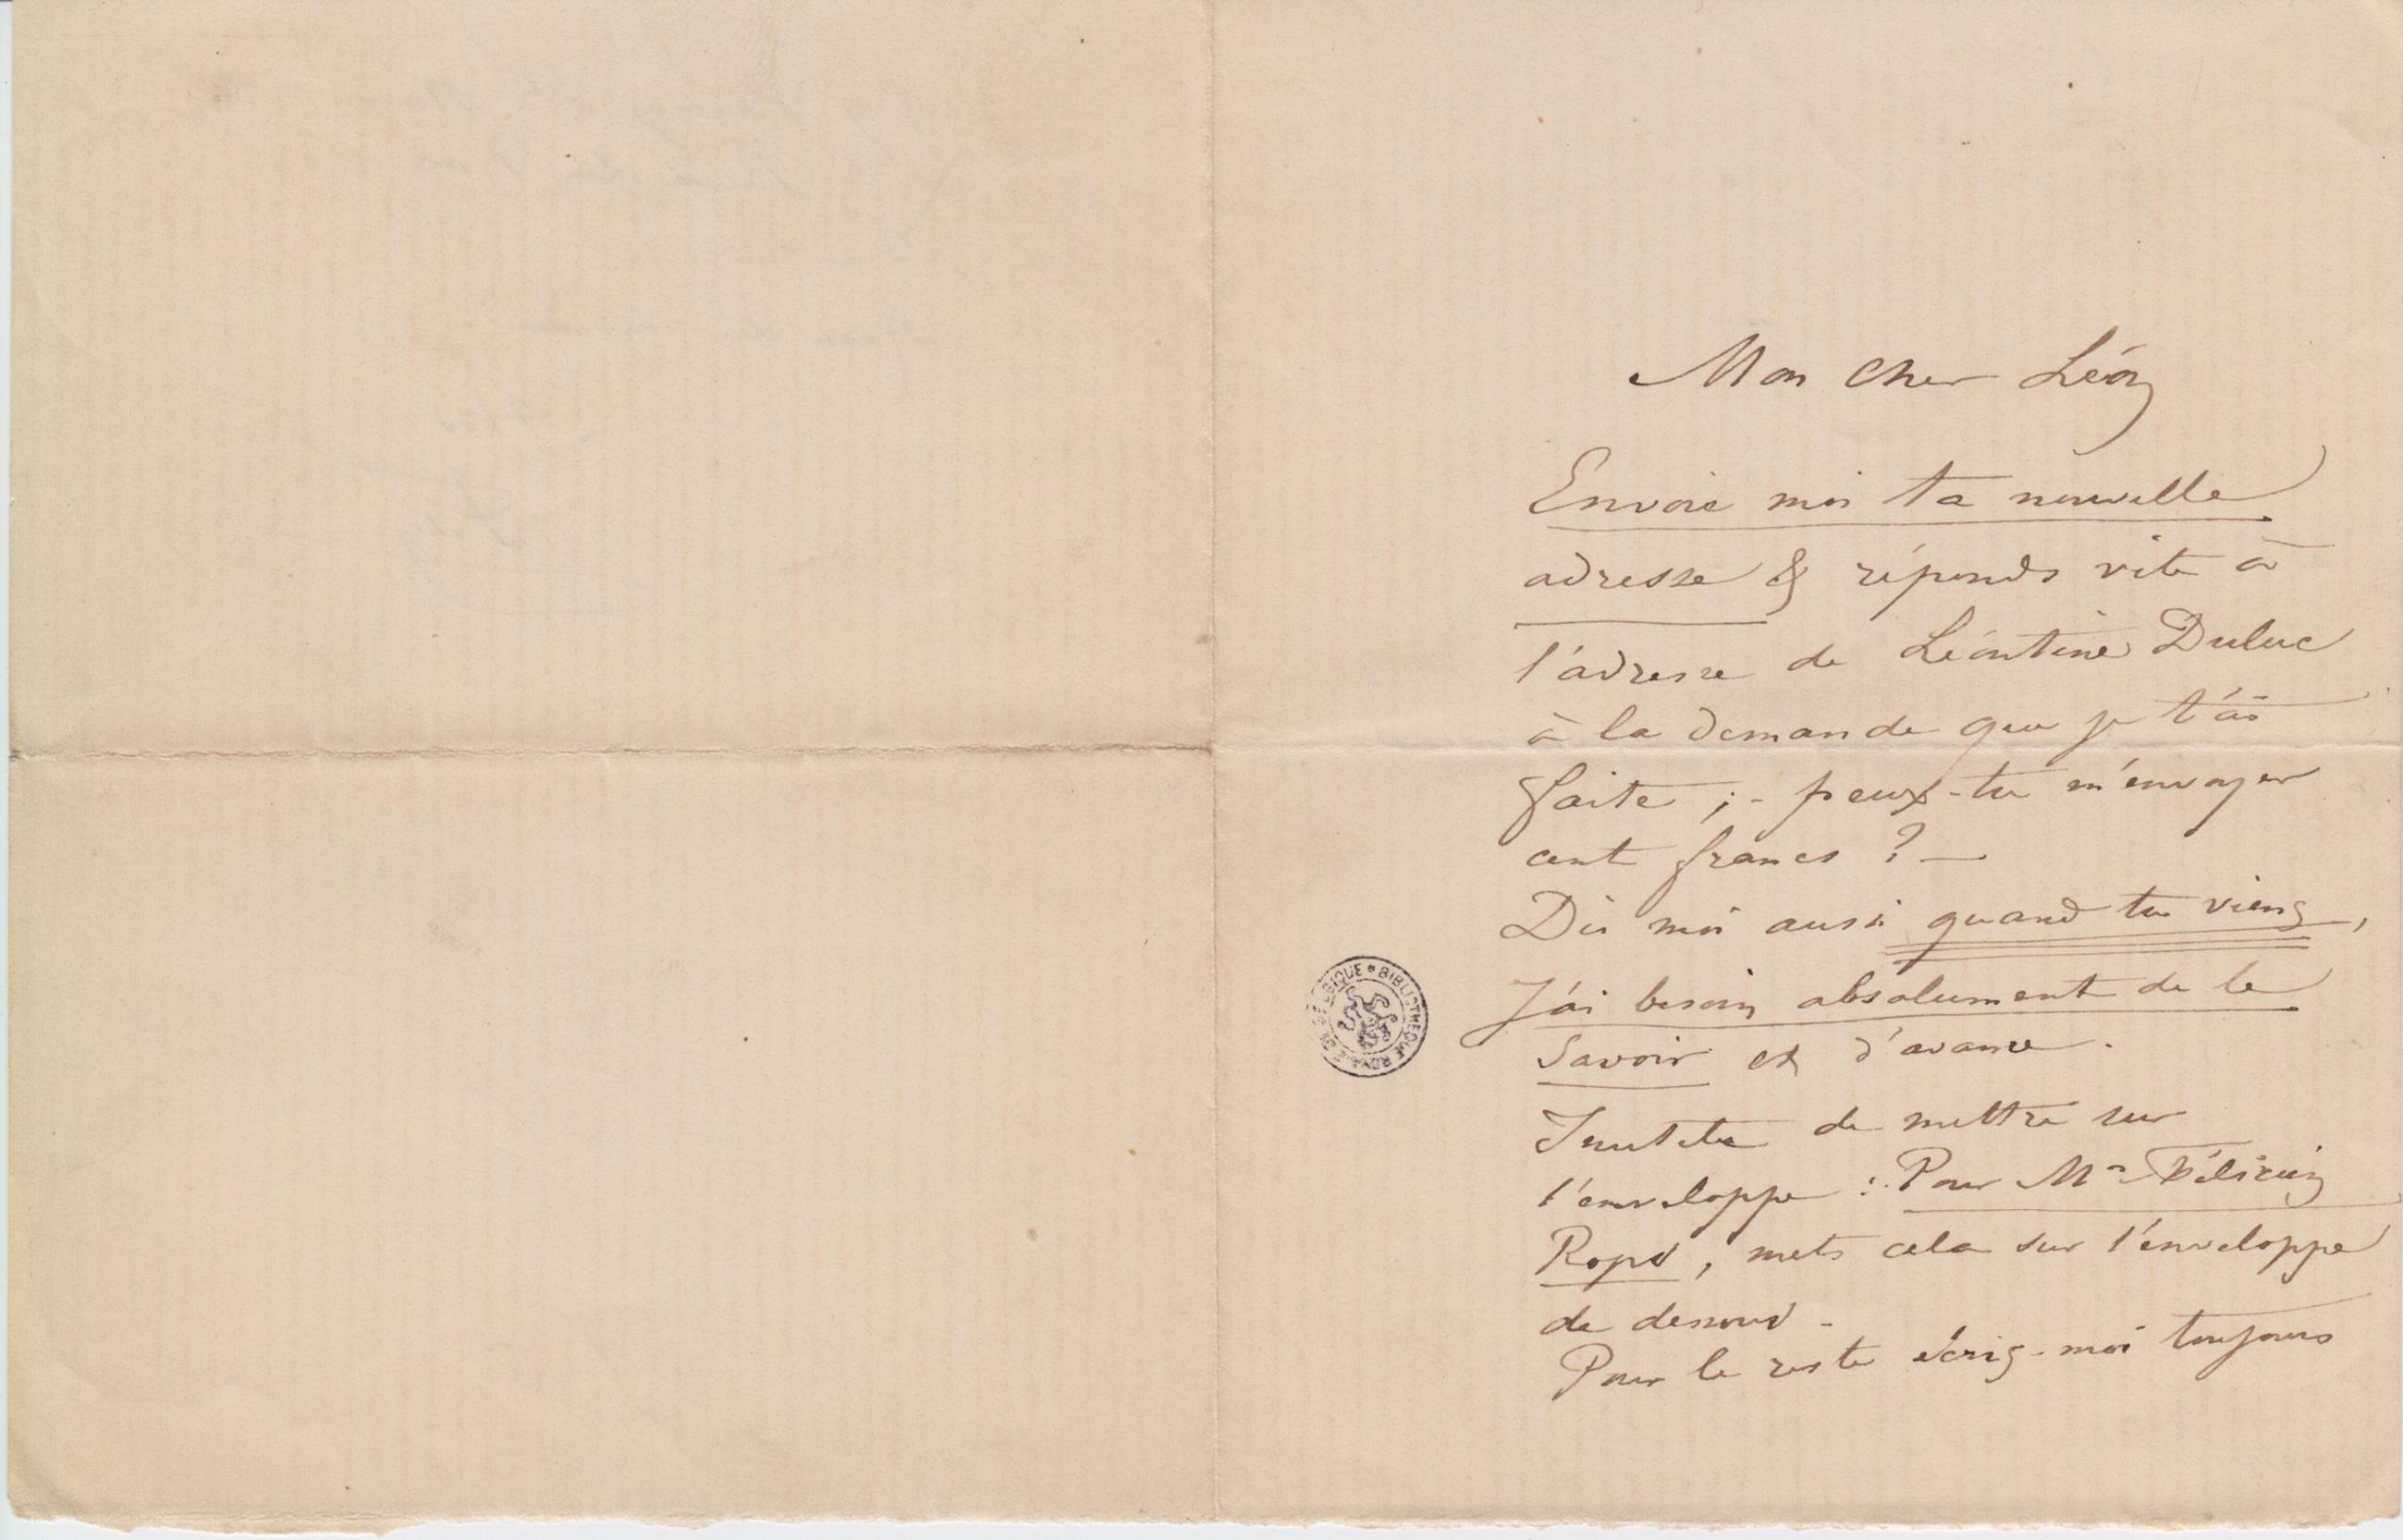 Mon cher Léon
Envoie moi ta nouvelle
adresse & réponds vite à
l'adresse de Léontine Duluc
à la demande que je t'ai
faite ; - peux-tu m'envoyer
cent francs ? —
Dis moi aussi quand tu viens,
J'ai besoin absolument de le
savoir et d'avance.
Inutile de mettre sur
l'enveloppe : Pour Mr Félicien
Rops, mets cela sur l'enveloppe
de dessous -
Pour le reste écris-moi toujours
BIBLIOTHEQUE ROYALE DE BELGIQUE